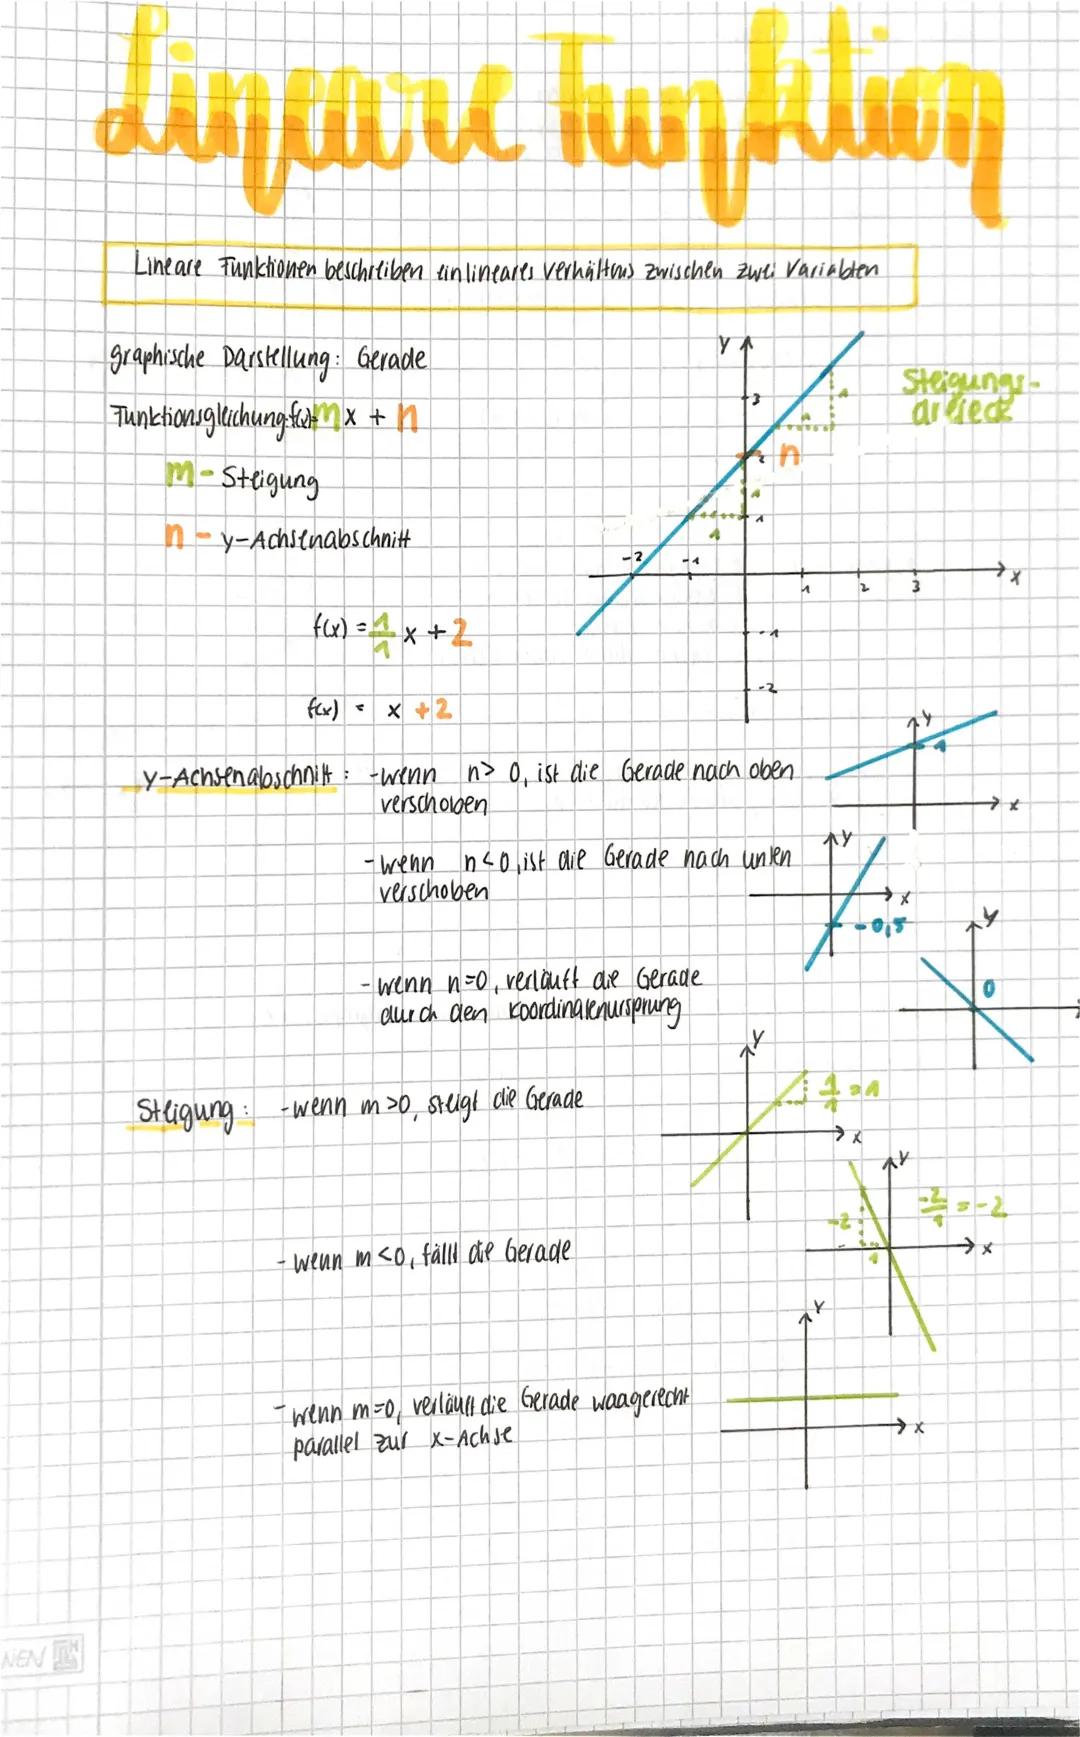 Lineare Funktion
Lineare Funktionen beschreiben ein lineares Verhältnis zwischen zwei Variablen
graphische Darstellung: Gerade
Funktionsgleichung: f(x)=mx + n
m - Steigung
n - y-Achsenabschnitt
f(x) = 1/1 x + 2
f(x) = x + 2
y
3
2
1
-1
-2
-2
-1
1
2
3
x
n
1
1
1
1
Steigungs-
dreieck
y-Achsenabschnitt: -wenn n> 0, ist die Gerade nach oben
verschoben
y
1
x
-wenn n<0, ist die Gerade nach unten
verschoben
y
x
-0,5
-wenn n=0, verläuft die Gerade
durch den Koordinatenursprung
y
0
Steigung: -wenn m>0, steigt die Gerade
y
1/1 = 1
x
-wenn m<0, fällt die Gerade
y
-2
1
-2/1 = -2
x
-wenn m=0, verläuft die Gerade waagerecht
parallel zur x-Achse
y
x
NEN